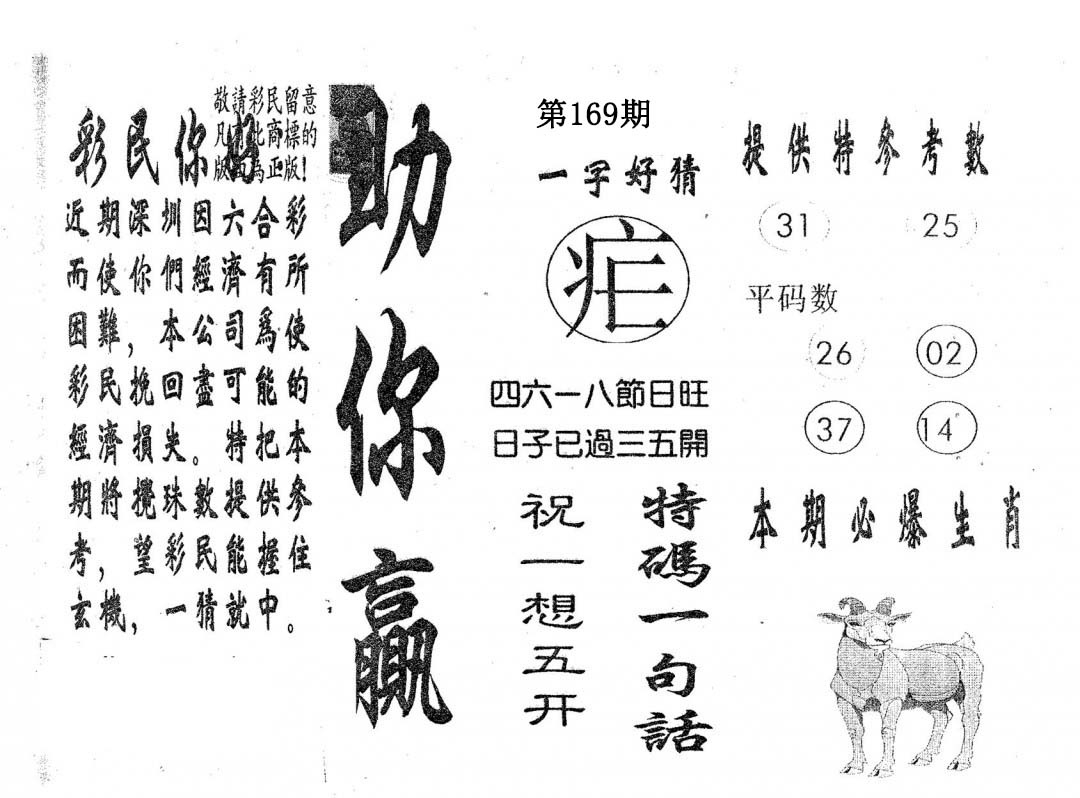 敬請彩民留意
凡有此商標的
版面為正版!
彩民你好
近期深圳因六合彩
而使你們經濟有所
困難，本公司爲使
彩民挽回盡可能的
經濟損失。特把本
期將攪珠數提供參
考，望彩民能握住
玄機，一猜就中。
助你贏
第169期
一字好猜
疟
四六一八節日旺
日子已過三五開
特碼一句話
祝一想五开
提供特參考數
31 25
平码数
26 02
37 14
本期必爆生肖